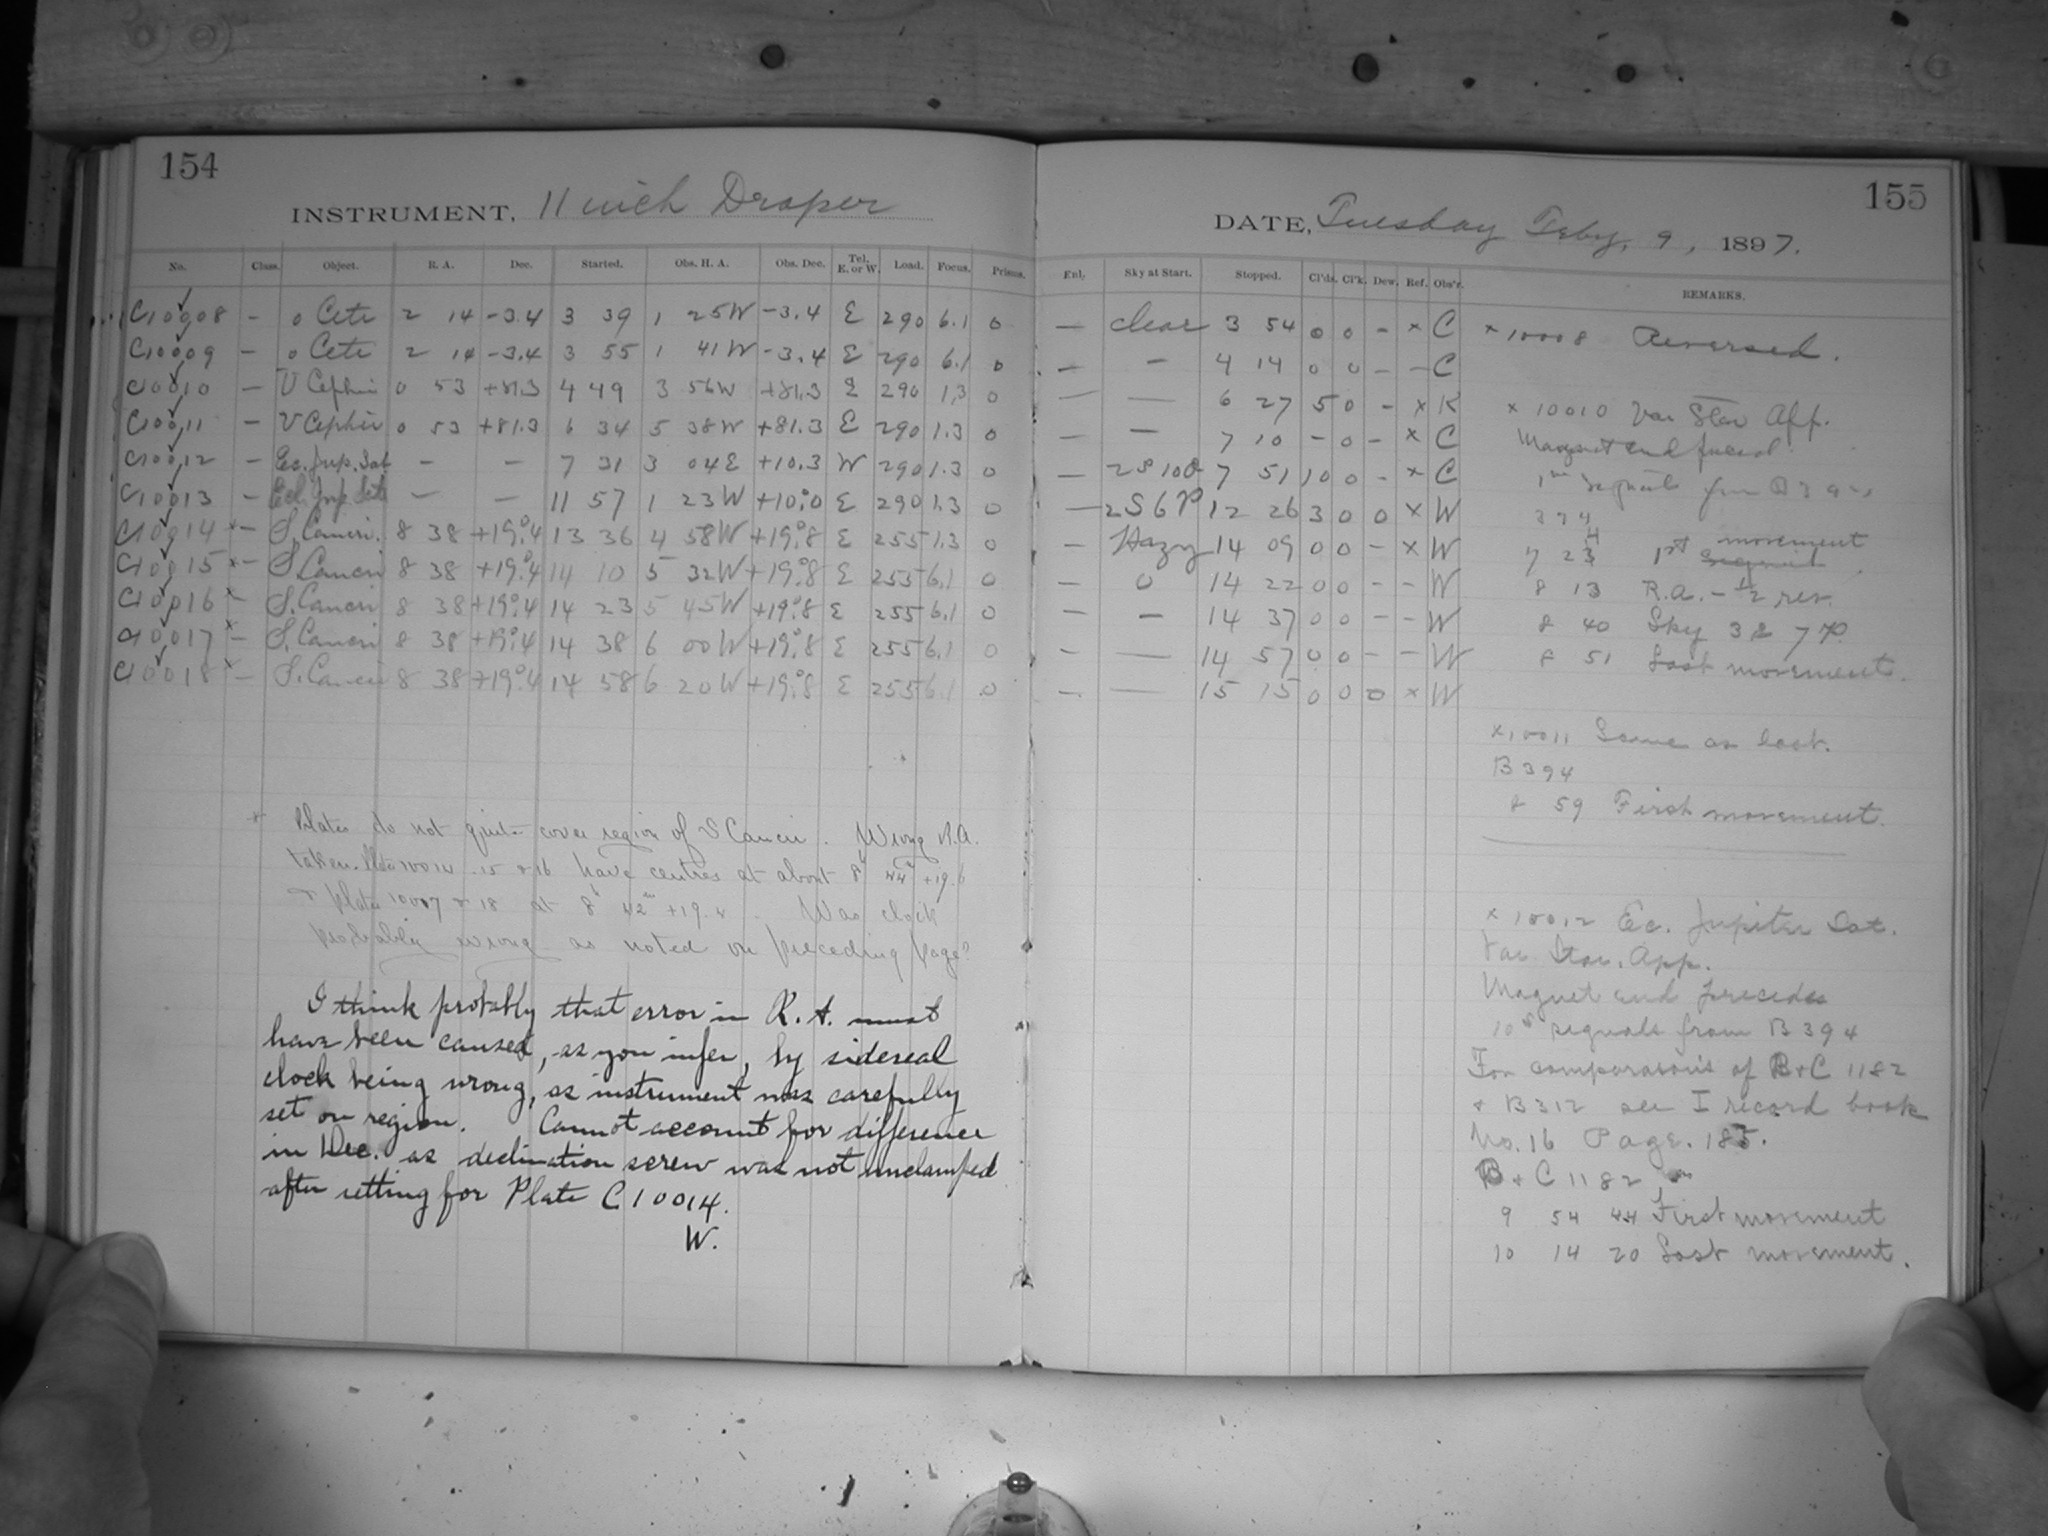 154
INSTRUMENT, 11 inch Draper
No. Class. Object. R. A. Dec. Started. Obs. H. A. Obs. Dec. Tel. E. or W. Load. Focus. Prisms.
C10008 - o Ceti 2 14 -3.4 3 39 1 25W -3.4 E 290 6.1 0
C10009 - o Ceti 2 14 -3.4 3 55 1 41W -3.4 E 290 6.1 0
C10010 - U Cephei 0 53 +81.3 4 49 3 56W +81.3 E 290 1.3 0
C10011 - U Cephei 0 53 +81.3 6 34 5 38W +81.3 E 290 1.3 0
C10012 - Ec. Jup. Sat - - 7 31 3 04E +10.3 W 290 1.3 0
C10013 - Ecl. Jup. Sats - - 11 57 1 23W +10.°0 E 290 1.3 0
C10014 x - S. Cancri. 8 38 +19.°4 13 36 4 58W +19.°8 E 255 1.3 0
C10015 x - S. Cancri 8 38 +19.°4 14 10 5 32W +19.°8 E 255 6.1 0
C10016 x - S. Cancri 8 38 +19.°4 14 23 5 45W +19.°8 E 255 6.1 0
C10017 x - S. Cancri 8 38 +19.°4 14 38 6 00W +19.°8 E 255 6.1 0
C10018 x - S. Cancri 8 38 +19.°4 14 58 6 20W +19.°8 E 255 6.1 0
x Plates do not quite cover region of S Cancri. Wrong R.A.
taken. Plates 10014 - 15 + 16 have centres at about 8h 44m +19.6
+ Plates 10017 + 18 at 8h 42m +19.4. Was clock
probably wrong as noted on preceding page?
I think probably that error in R. A. must
have been caused, as you infer, by sidereal
clock being wrong, as instrument was carefully
set on region. Cannot account for difference
in Dec. as declination screw was not unclamped
after setting for Plate C10014.
W.
155
DATE, Tuesday Feby. 9, 1897.
Enl. Sky at Start. Stopped. Cl'ds. Cl'k. Dew. Ref. Obs'r. REMARKS.
- clear 3 54 0 0 - x C
- - 4 14 0 0 - - C
- - 6 27 5 0 - x K
- - 7 10 - 0 - x C
- 2S 10P 7 51 10 0 - x C
- 2S 6P 12 26 3 0 0 x W
- Hazy 14 09 0 0 - x W
- 0 14 22 0 0 - - W
- - 14 37 0 0 - - W
- - 14 57 0 0 - - W
- - 15 15 0 0 0 x W
x 10008 Reversed.
x 10010 Var Star App.
Magnet end preced.
394
7 23 1st movement
8 13 R.A. - 1/2 rev.
8 40 Sky 3S 7P.
8 51 Last movement.
x10011 Same as last.
B 394
8 59 First movement.
x 10012 Ec. Jupiter Sat.
Var Star. App.
Magnet end precedes
10s signals from B 394
For comparisons of B+C 1182
+ B 312 see I record book
No. 16 Page. 185.
B + C 1182
9 54 44 First movement
10 14 20 Last movement.